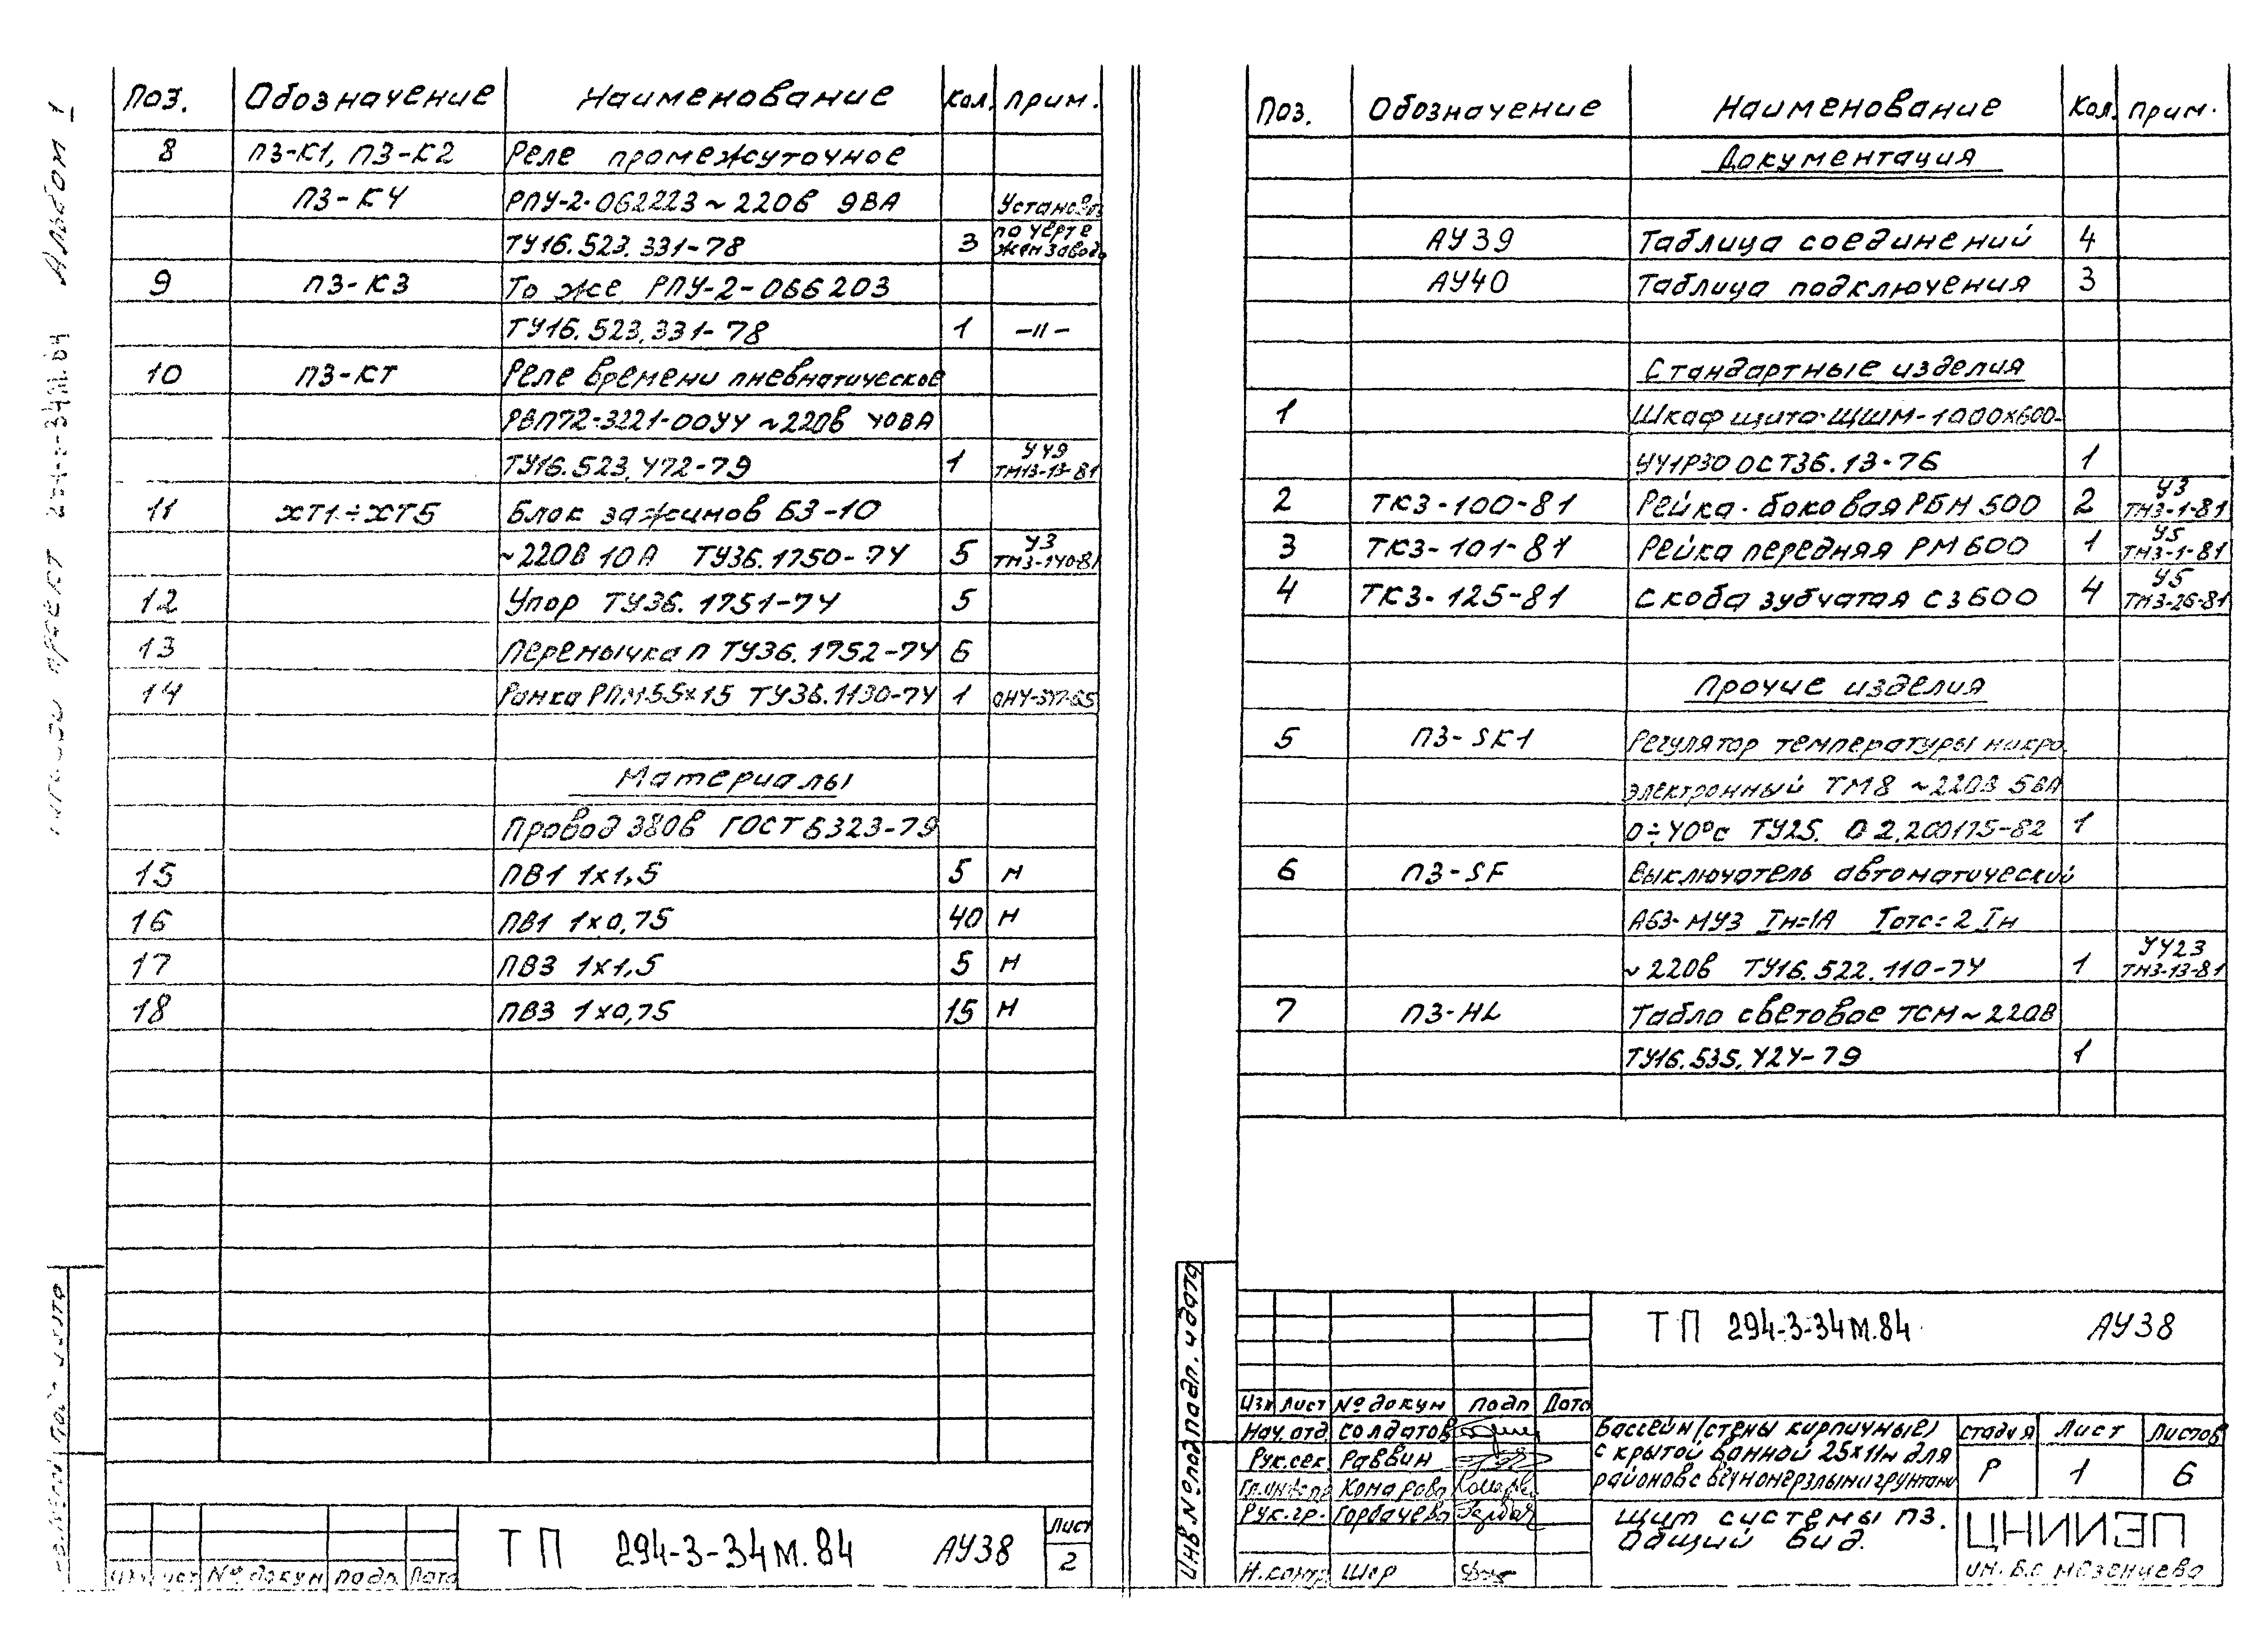 Альбом 1
Поз. Обозначение Наименование Кол. Прим.
8 П3-К1, П3-К2 Реле промежуточное
П3-К4 РПУ-2-062223 ~ 220В 9ВА
ТУ16.523.331-78 3
9 П3-К3 То же РПУ-2-066203
ТУ16.523.331-78 1 -"-
10 П3-КТ Реле времени пневматическое
РВП72-3221-00У4 ~220В 40ВА
ТУ16.523.472-79 1 У49 ТМ13-13-81
11 ХТ1÷ХТ5 Блок зажимов БЗ-10
~220В 10А ТУ36.1750-74 5 У3 ТМ3-140-81
12 Упор ТУ36.1751-74 5
13 Перемычка П ТУ36.1752-74 6
14 Рамка РПМ55х15 ТУ36.1130-74 1
Материалы
Провод 380В ГОСТ 6323-79
15 ПВ1 1х1,5 5 м
16 ПВ1 1х0,75 40 м
17 ПВ3 1х1,5 5 м
18 ПВ3 1х0,75 15 м
Изм Лист № докум Подп. Дата
ТП 294-3-34м.84 АУ38
Лист
2
Поз. Обозначение Наименование Кол. Прим.
Документация
АУ39 Таблица соединений 4
АУ40 Таблица подключения 3
Стандартные изделия
1 Шкаф щита ЩШМ-1000х600-
УУ1Р30 ОСТ36.13-76 1
2 ТК3-100-81 Рейка боковая РБМ 500 2 У3 ТМ3-1-81
3 ТК3-101-81 Рейка передняя РМ600 1 У5 ТМ3-1-81
4 ТК3-125-81 Скоба зубчатая СЗ600 4 У5 ТМ3-26-81
Прочие изделия
5 П3-SK1 Регулятор температуры микро
электронный ТМ8 ~220В 5ВА
0÷40°С ТУ25.02.200175-82 1
6 П3-SF Выключатель автоматический
А63-МУ3 Iн=1А Iотс=2Iн
~220В ТУ16.522.110-74 1 УУ23 ТМ3-13-81
7 П3-HL Табло световое ТСМ ~220В
ТУ16.535.424-79 1
Инв № подл Подп. и дата
ТП 294-3-34м.84 АУ38
Изм Лист № докум Подп Дата
Нач. отд. Солдатов
Рук. сек. Раввин
Гл. инж. пр. Комарова
Рук. гр. Горбачева
Н. контр. Шер
Бассейн (стены кирпичные)
с крытой ванной 25х11м для
районов с вечномерзлыми грунтами
Стадия Лист Листов
Р 1 6
Щит системы П3.
Общий вид.
ЦНИИЭП
им. Б.С. Мезенцева